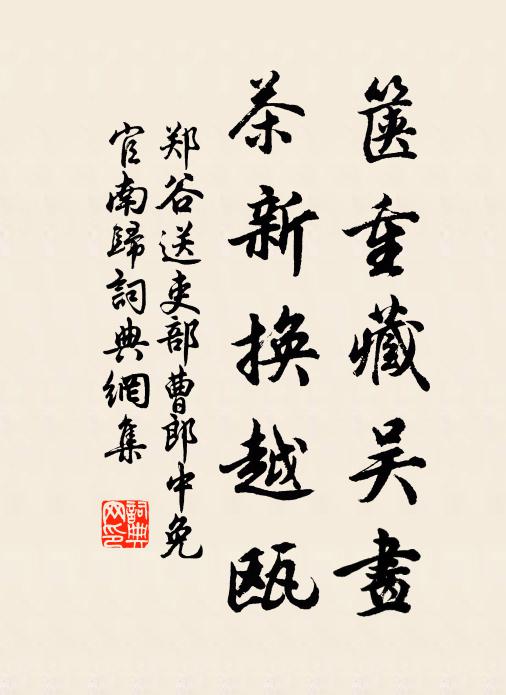 篋重藏吴畫
茶新換越瓯
郑谷送吏部曹郎中免
官南歸詞典網集
詞典
网印